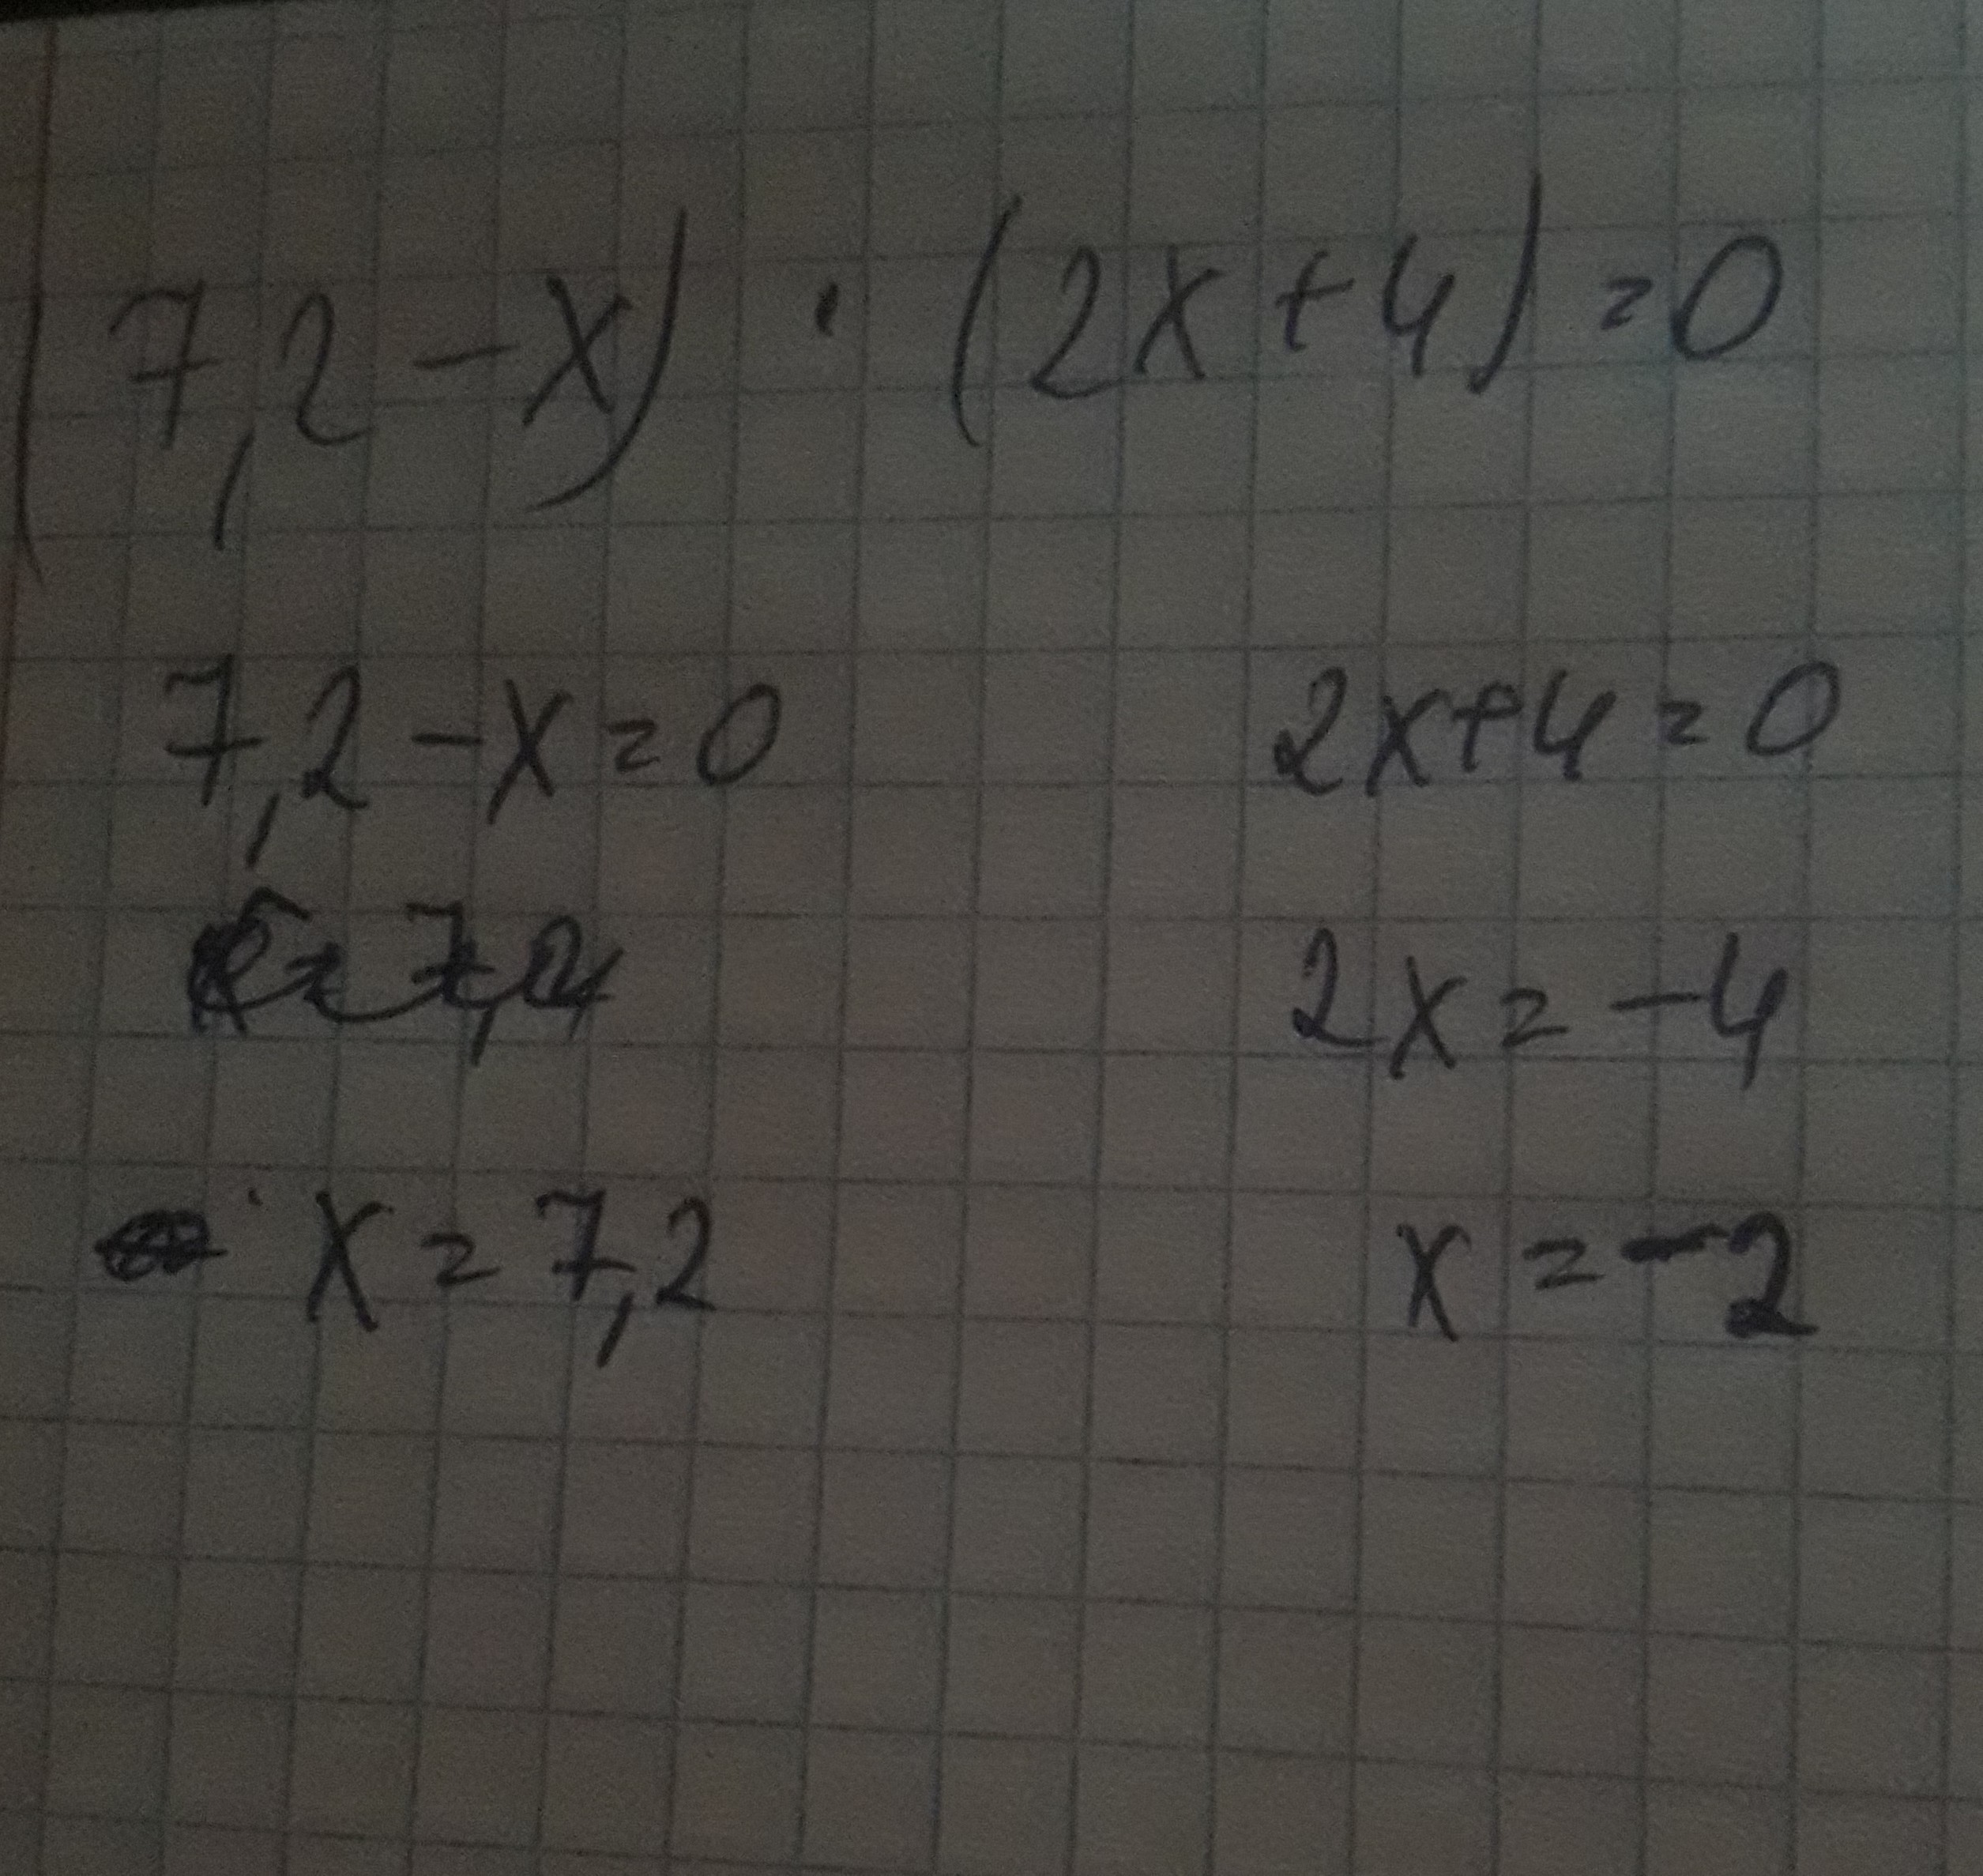 (7,2 - x) · (2x + 4) = 0
7,2 - x = 0 2x + 4 = 0
2x = -4
x = 7,2 x = -2